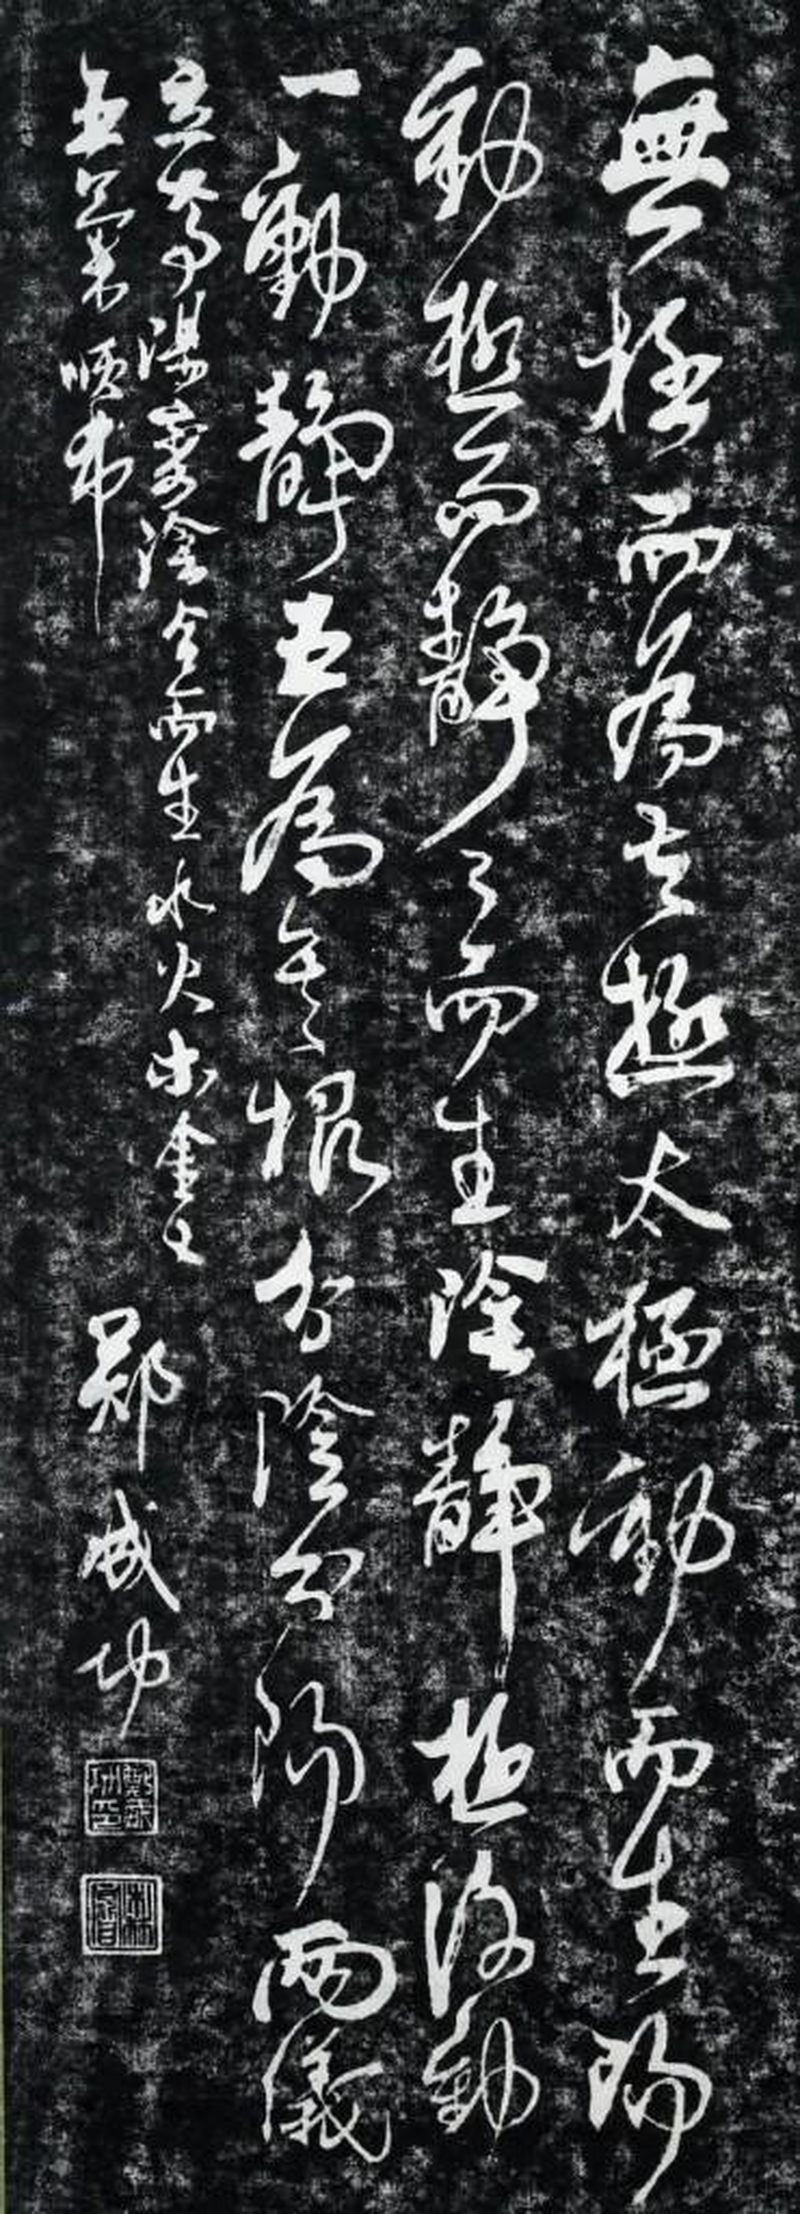 無極而為太極太極動而生陽
動極而靜々而生陰靜極復動
一動靜互為其根分陰分陽兩儀
立焉陽變陰合而生水火木金土
五氣順布
鄭成功
鄭成功印